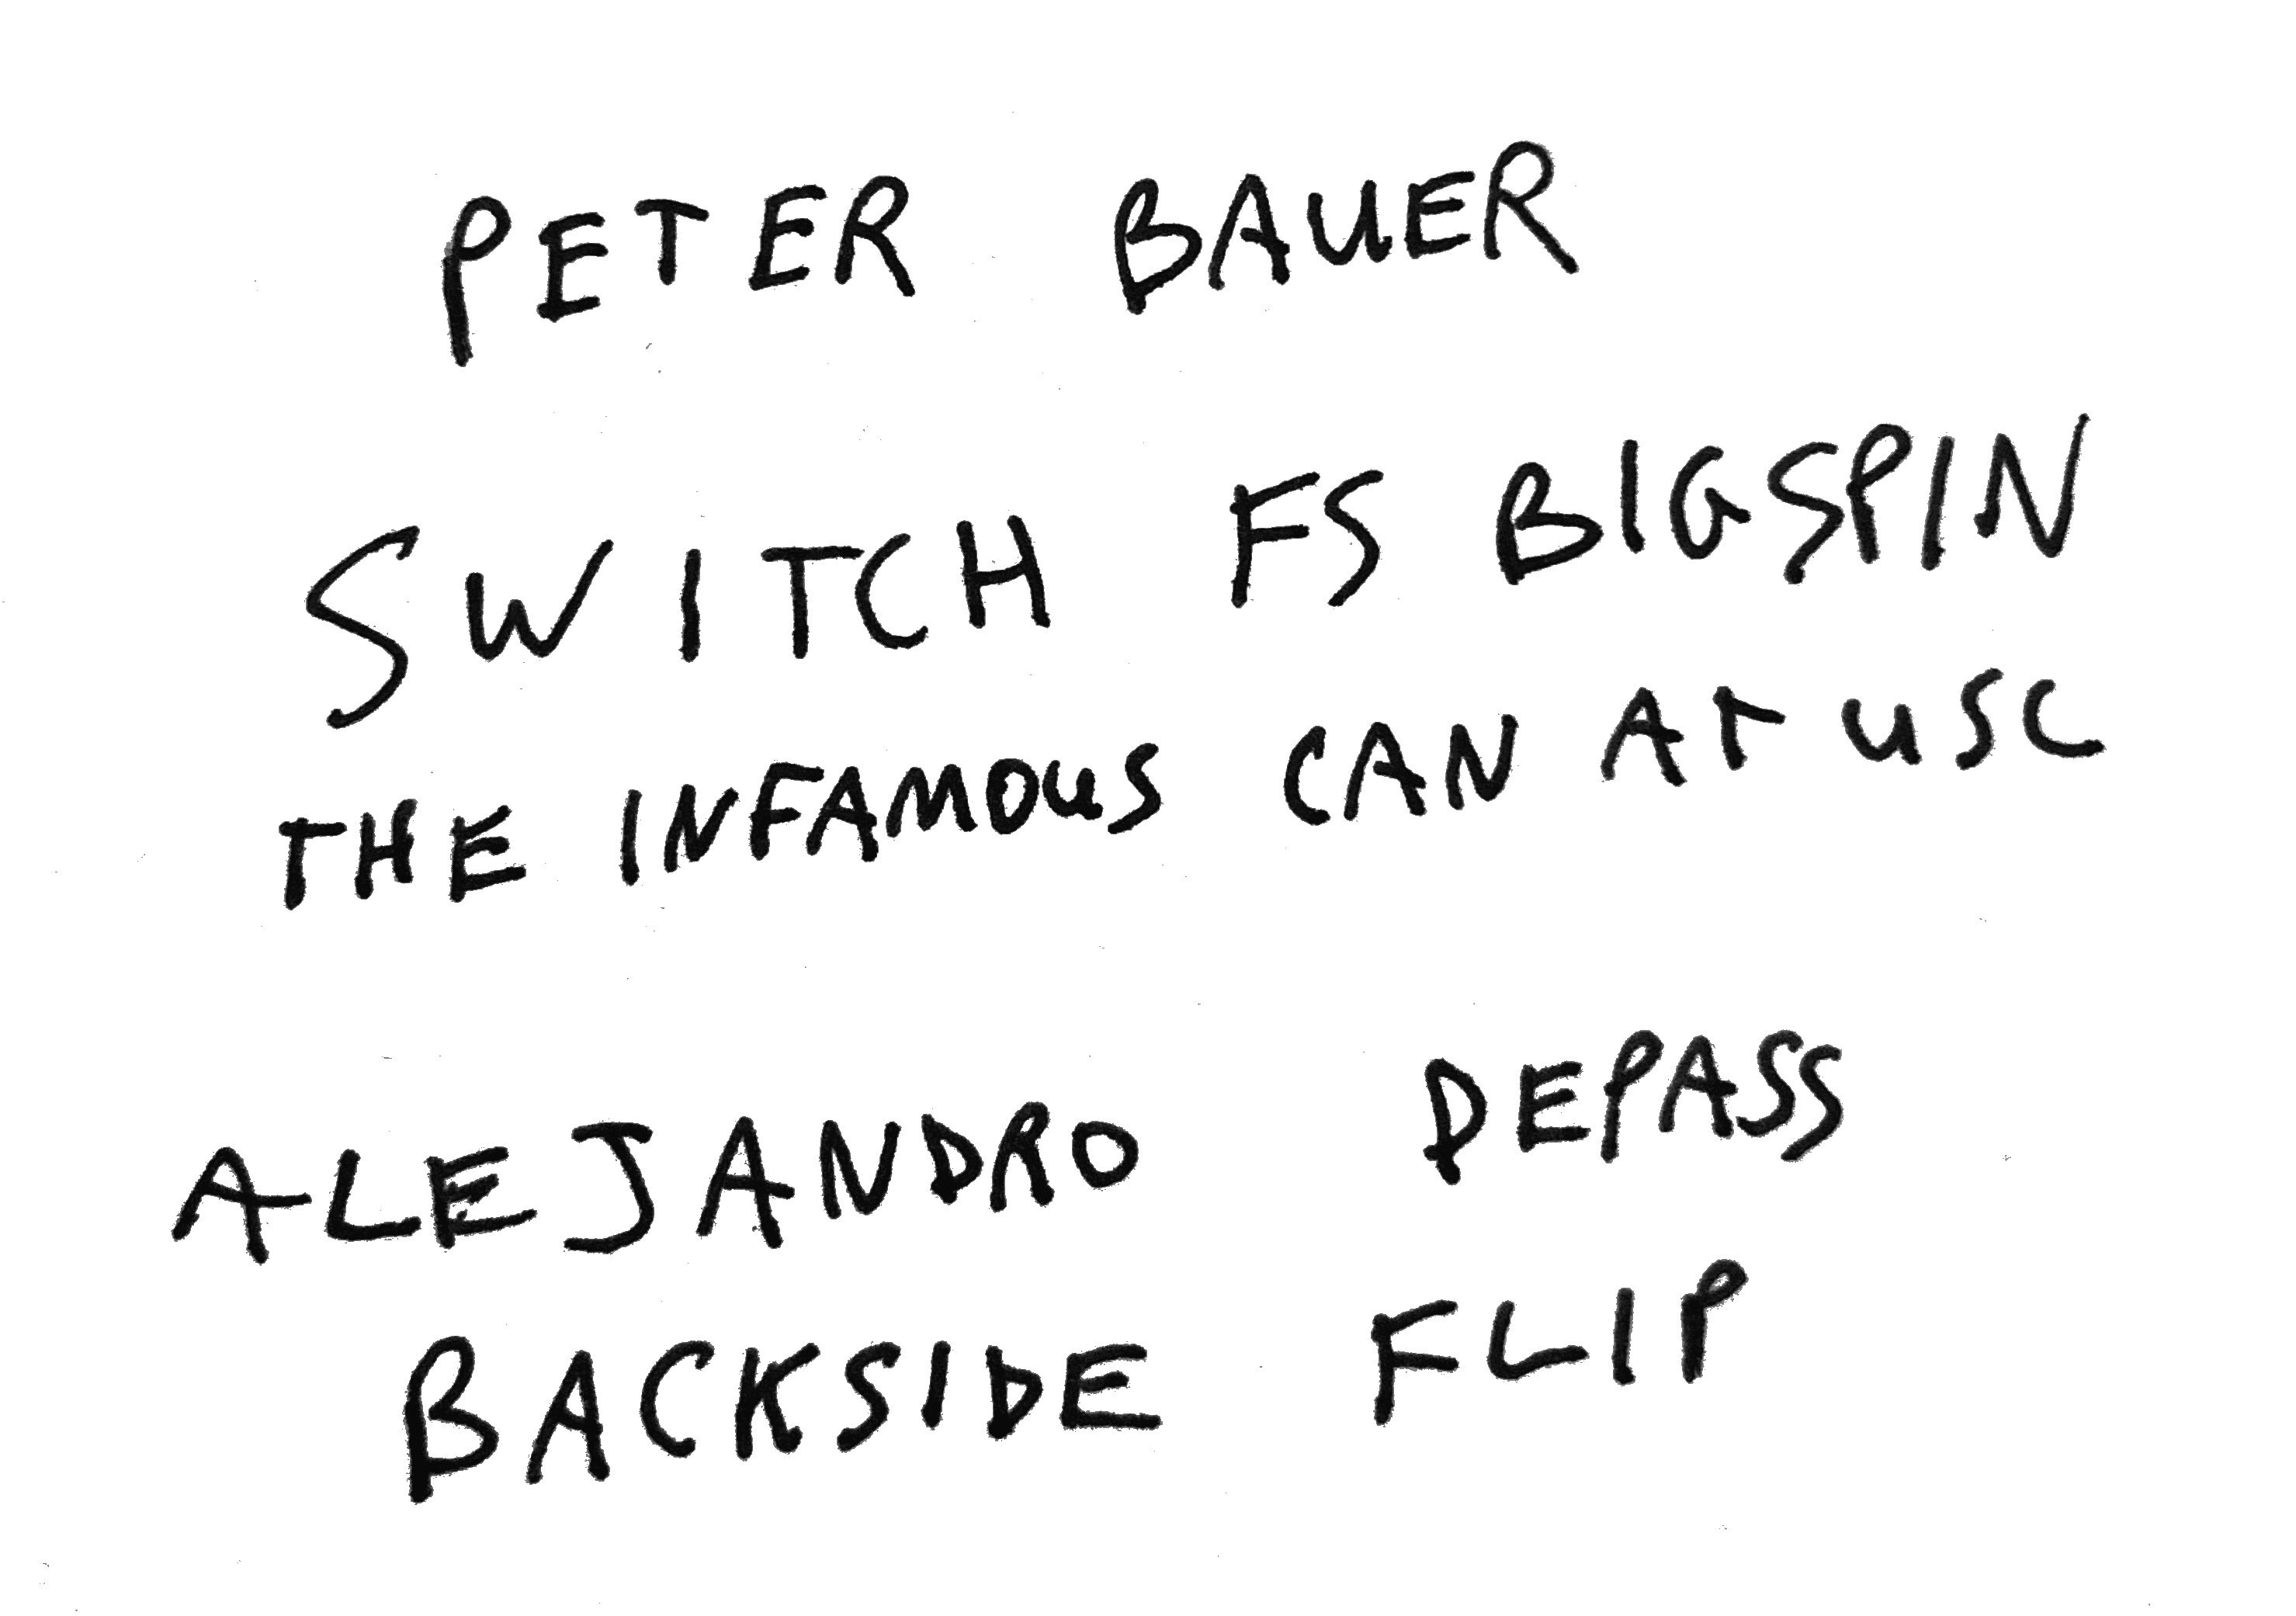 PETER BAUER
SWITCH FS BIGSPIN
THE INFAMOUS CAN AT USC
ALEJANDRO DEPASS
BACKSIDE FLIP